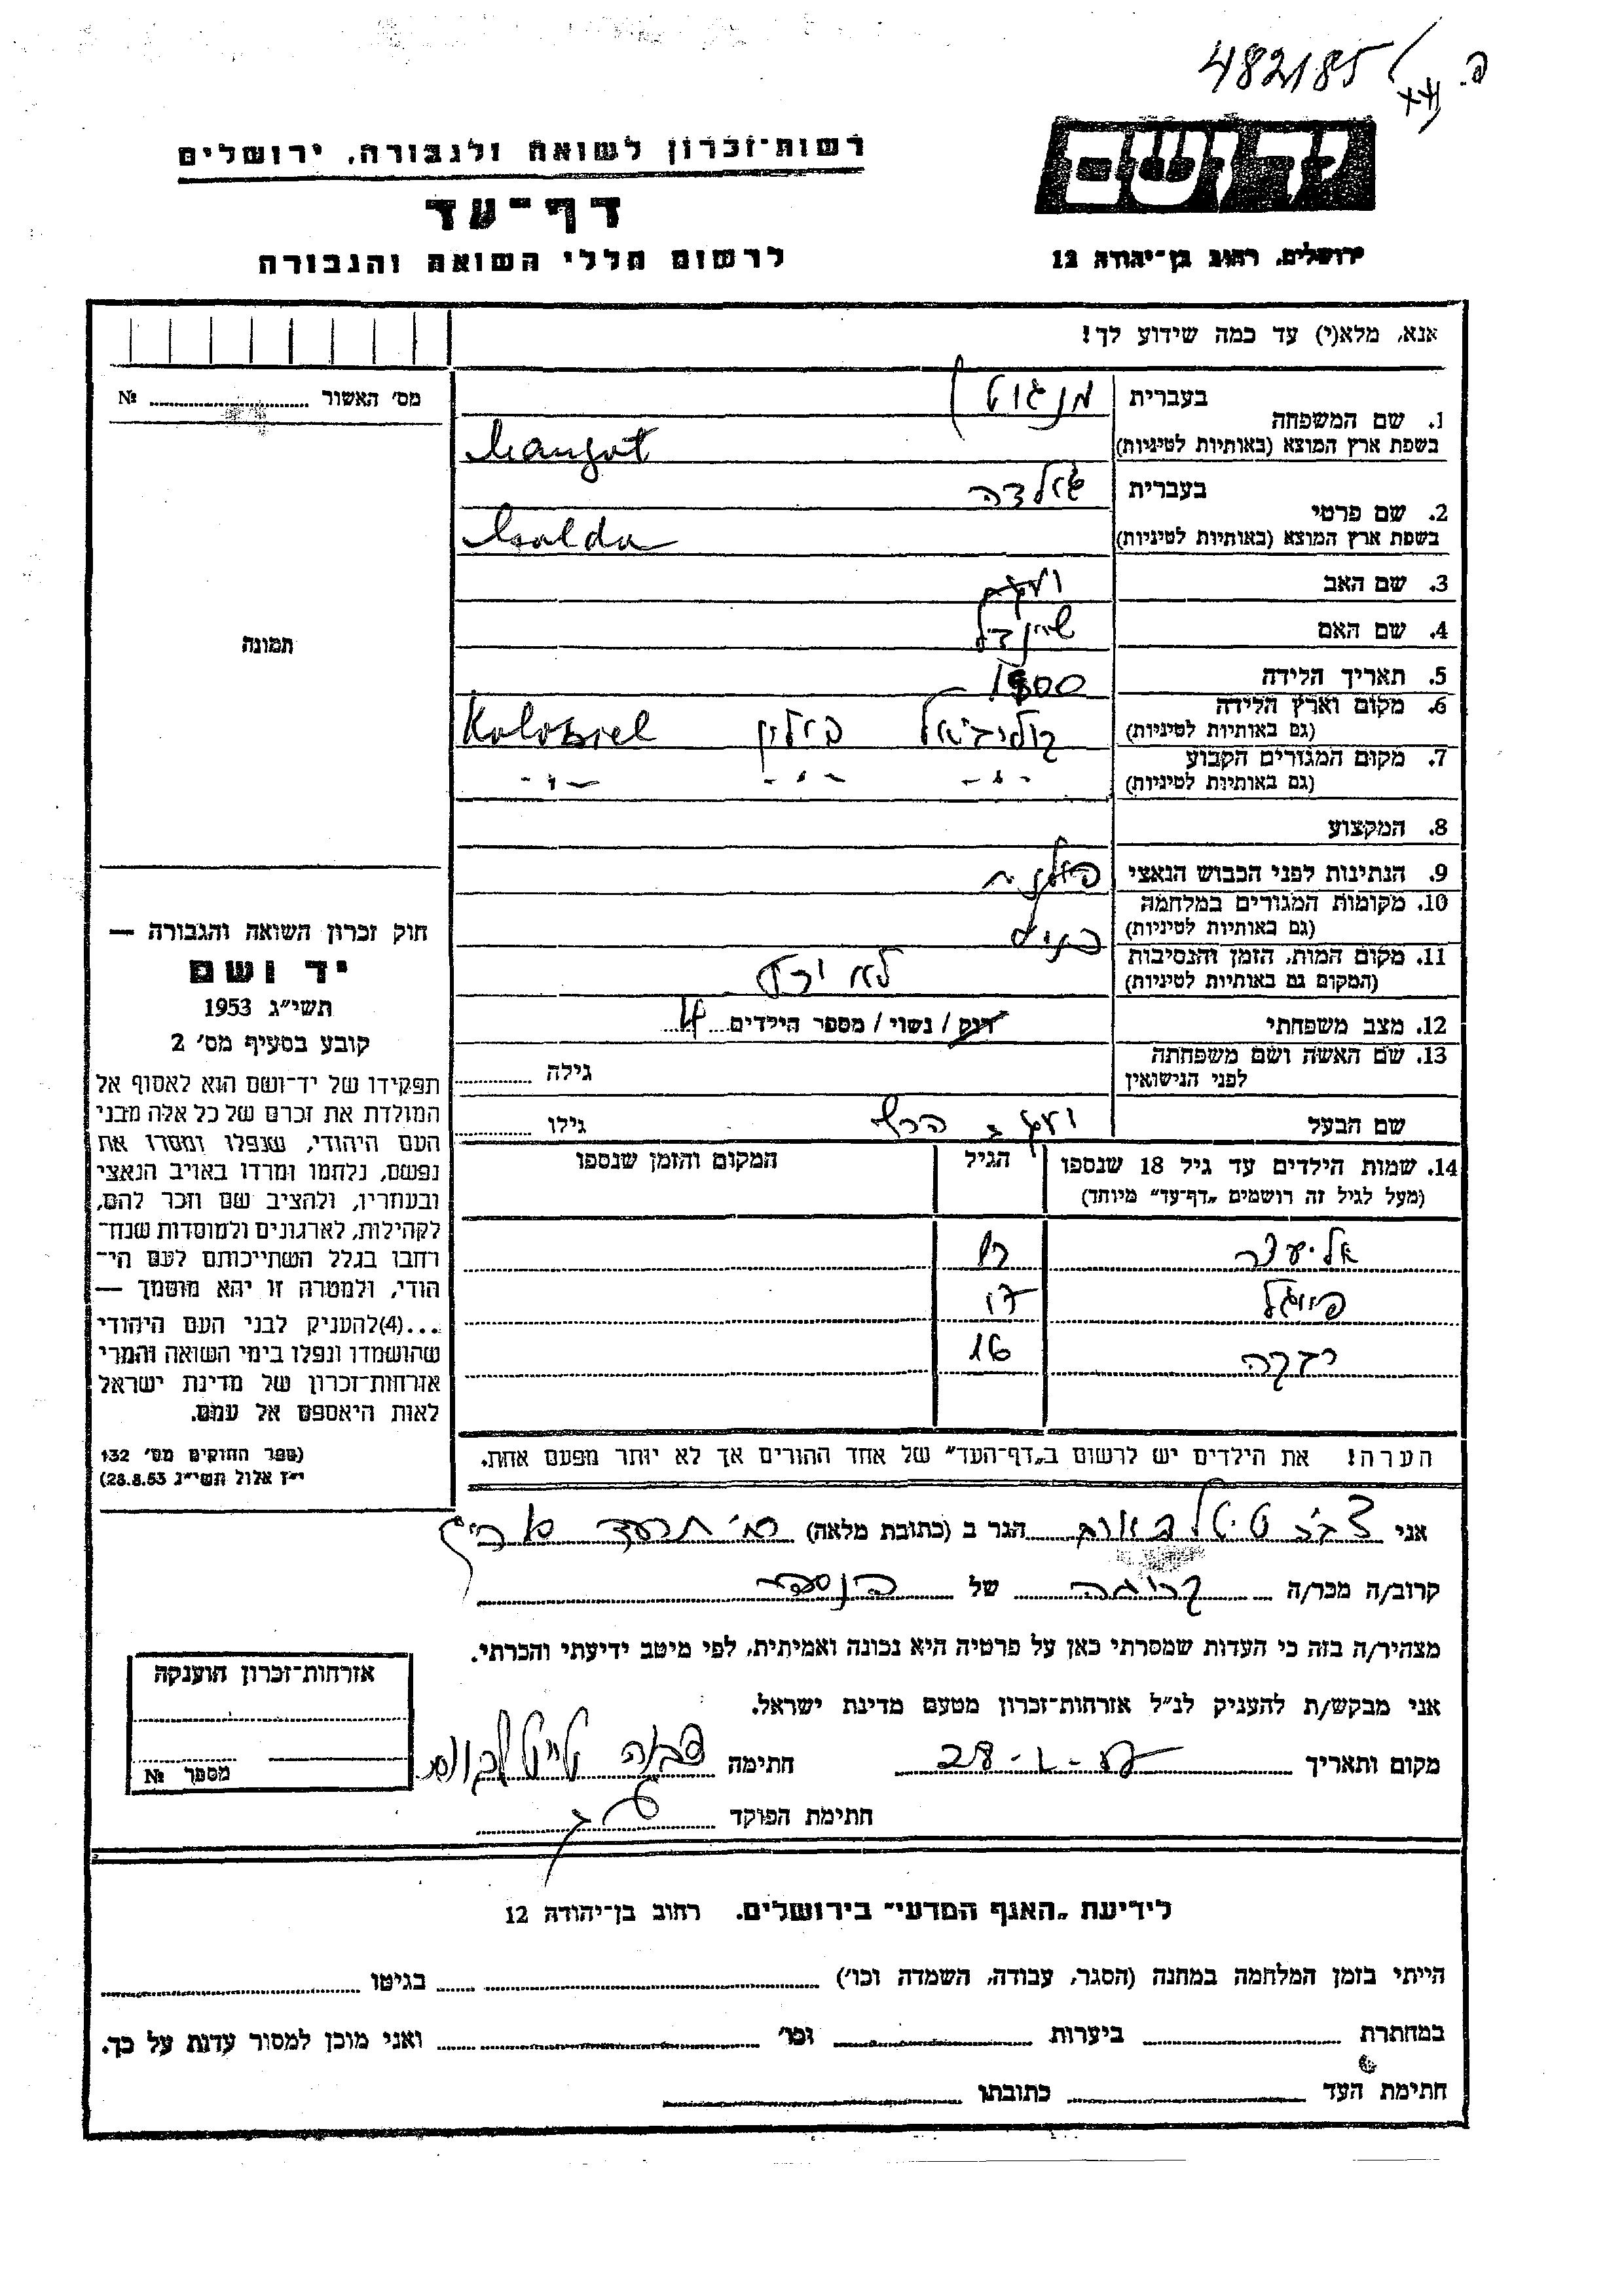 482185
רשות־זכרון לשואה ולגבורה, ירושלים
יד ושם
דף־עד
לרשום חללי השואה והגבורה
ירושלים, רחוב בן־יהודה 12
אנא, מלא(י) עד כמה שידוע לך!
מס' האשור № 
1. שם המשפחה
בעברית מנגוט
בשפת ארץ המוצא (באותיות לטיניות) Mangot
2. שם פרטי
בעברית
בשפת ארץ המוצא (באותיות לטיניות)
3. שם האב
4. שם האם שיינדל
תמונה
5. תאריך הלידה 1900
6. מקום וארץ הלידה
(גם באותיות לטיניות) פולין Kolobiel
7. מקום המגורים הקבוע
(גם באותיות לטיניות) -"- -"- -"-
8. המקצוע
9. הנתינות לפני הכבוש הנאצי פולנית
10. מקומות המגורים במלחמה
(גם באותיות לטיניות)
11. מקום המות, הזמן והנסיבות
(המקום גם באותיות לטיניות) לא ידוע
12. מצב משפחתי רווק / נשוי / מספר הילדים 4
13. שם האשה ושם משפחתה
לפני הנישואין גילה
שם הבעל גילו
14. שמות הילדים עד גיל 18 שנספו הגיל המקום והזמן שנספו
(מעל לגיל זה רושמים "דף־עד" מיוחד)
אליעזר
פייגל 17
רבקה 16
הערה! את הילדים יש לרשום ב"דף־העד" של אחד ההורים אך לא יותר מפעם אחת.
חוק זכרון השואה והגבורה —
יד ושם
תשי"ג 1953
קובע בסעיף מס' 2
תפקידו של יד־ושם הוא לאסוף אל
המולדת את זכרם של כל אלה מבני
העם היהודי, שנפלו ומסרו את
נפשם, נלחמו ומרדו באויב הנאצי
ובעוזריו, ולהציב שם וזכר להם,
לקהילות, לארגונים ולמוסדות שנח־
רחבו בגלל השתייכותם לעם הי־
הודי, ולמטרה זו יהא מוסמך —
...(4)להעניק לבני העם היהודי
שהושמדו ונפלו בימי השואה והמרי
אזרחות־זכרון של מדינת ישראל
לאות היאספם אל עמם.
(ספר החוקים מס' 132
י"ז אלול תשי"ג 28.8.53)
אני הגר ב (כתובת מלאה)
קרוב/ה מכר/ה קרובה של הנספה
מצהיר/ה בזה כי העדות שמסרתי כאן על פרטיה היא נכונה ואמיתית, לפי מיטב ידיעתי והכרתי.
אני מבקש/ת להעניק לנ"ל אזרחות־זכרון מטעם מדינת ישראל.
מקום ותאריך חתימה
חתימת הפוקד
אזרחות־זכרון הוענקה
מספר №
לידיעת "האגף המדעי" בירושלים. רחוב בן־יהודה 12
הייתי בזמן המלחמה במחנה (הסגר, עבודה, השמדה וכו') בגיטו
במחתרת ביערות וכו' ואני מוכן למסור עדות על כך.
חתימת העד כתובתו